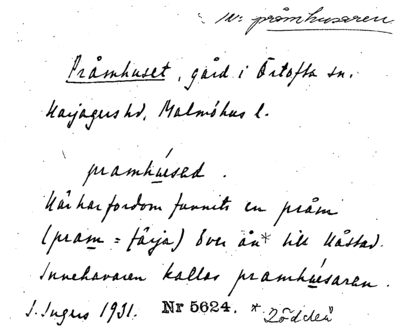 se pråmhusaren
Pråmhuset, gård i Örtofta sn.
Harjagers hd, Malmöhus l.
pramhúsed.
Här har fordom funnits en pråm
(pram = färja) över ån* till Håstad.
Innehavaren kallas pramhúsaren.
I. Ingers 1931. Nr 5624. *